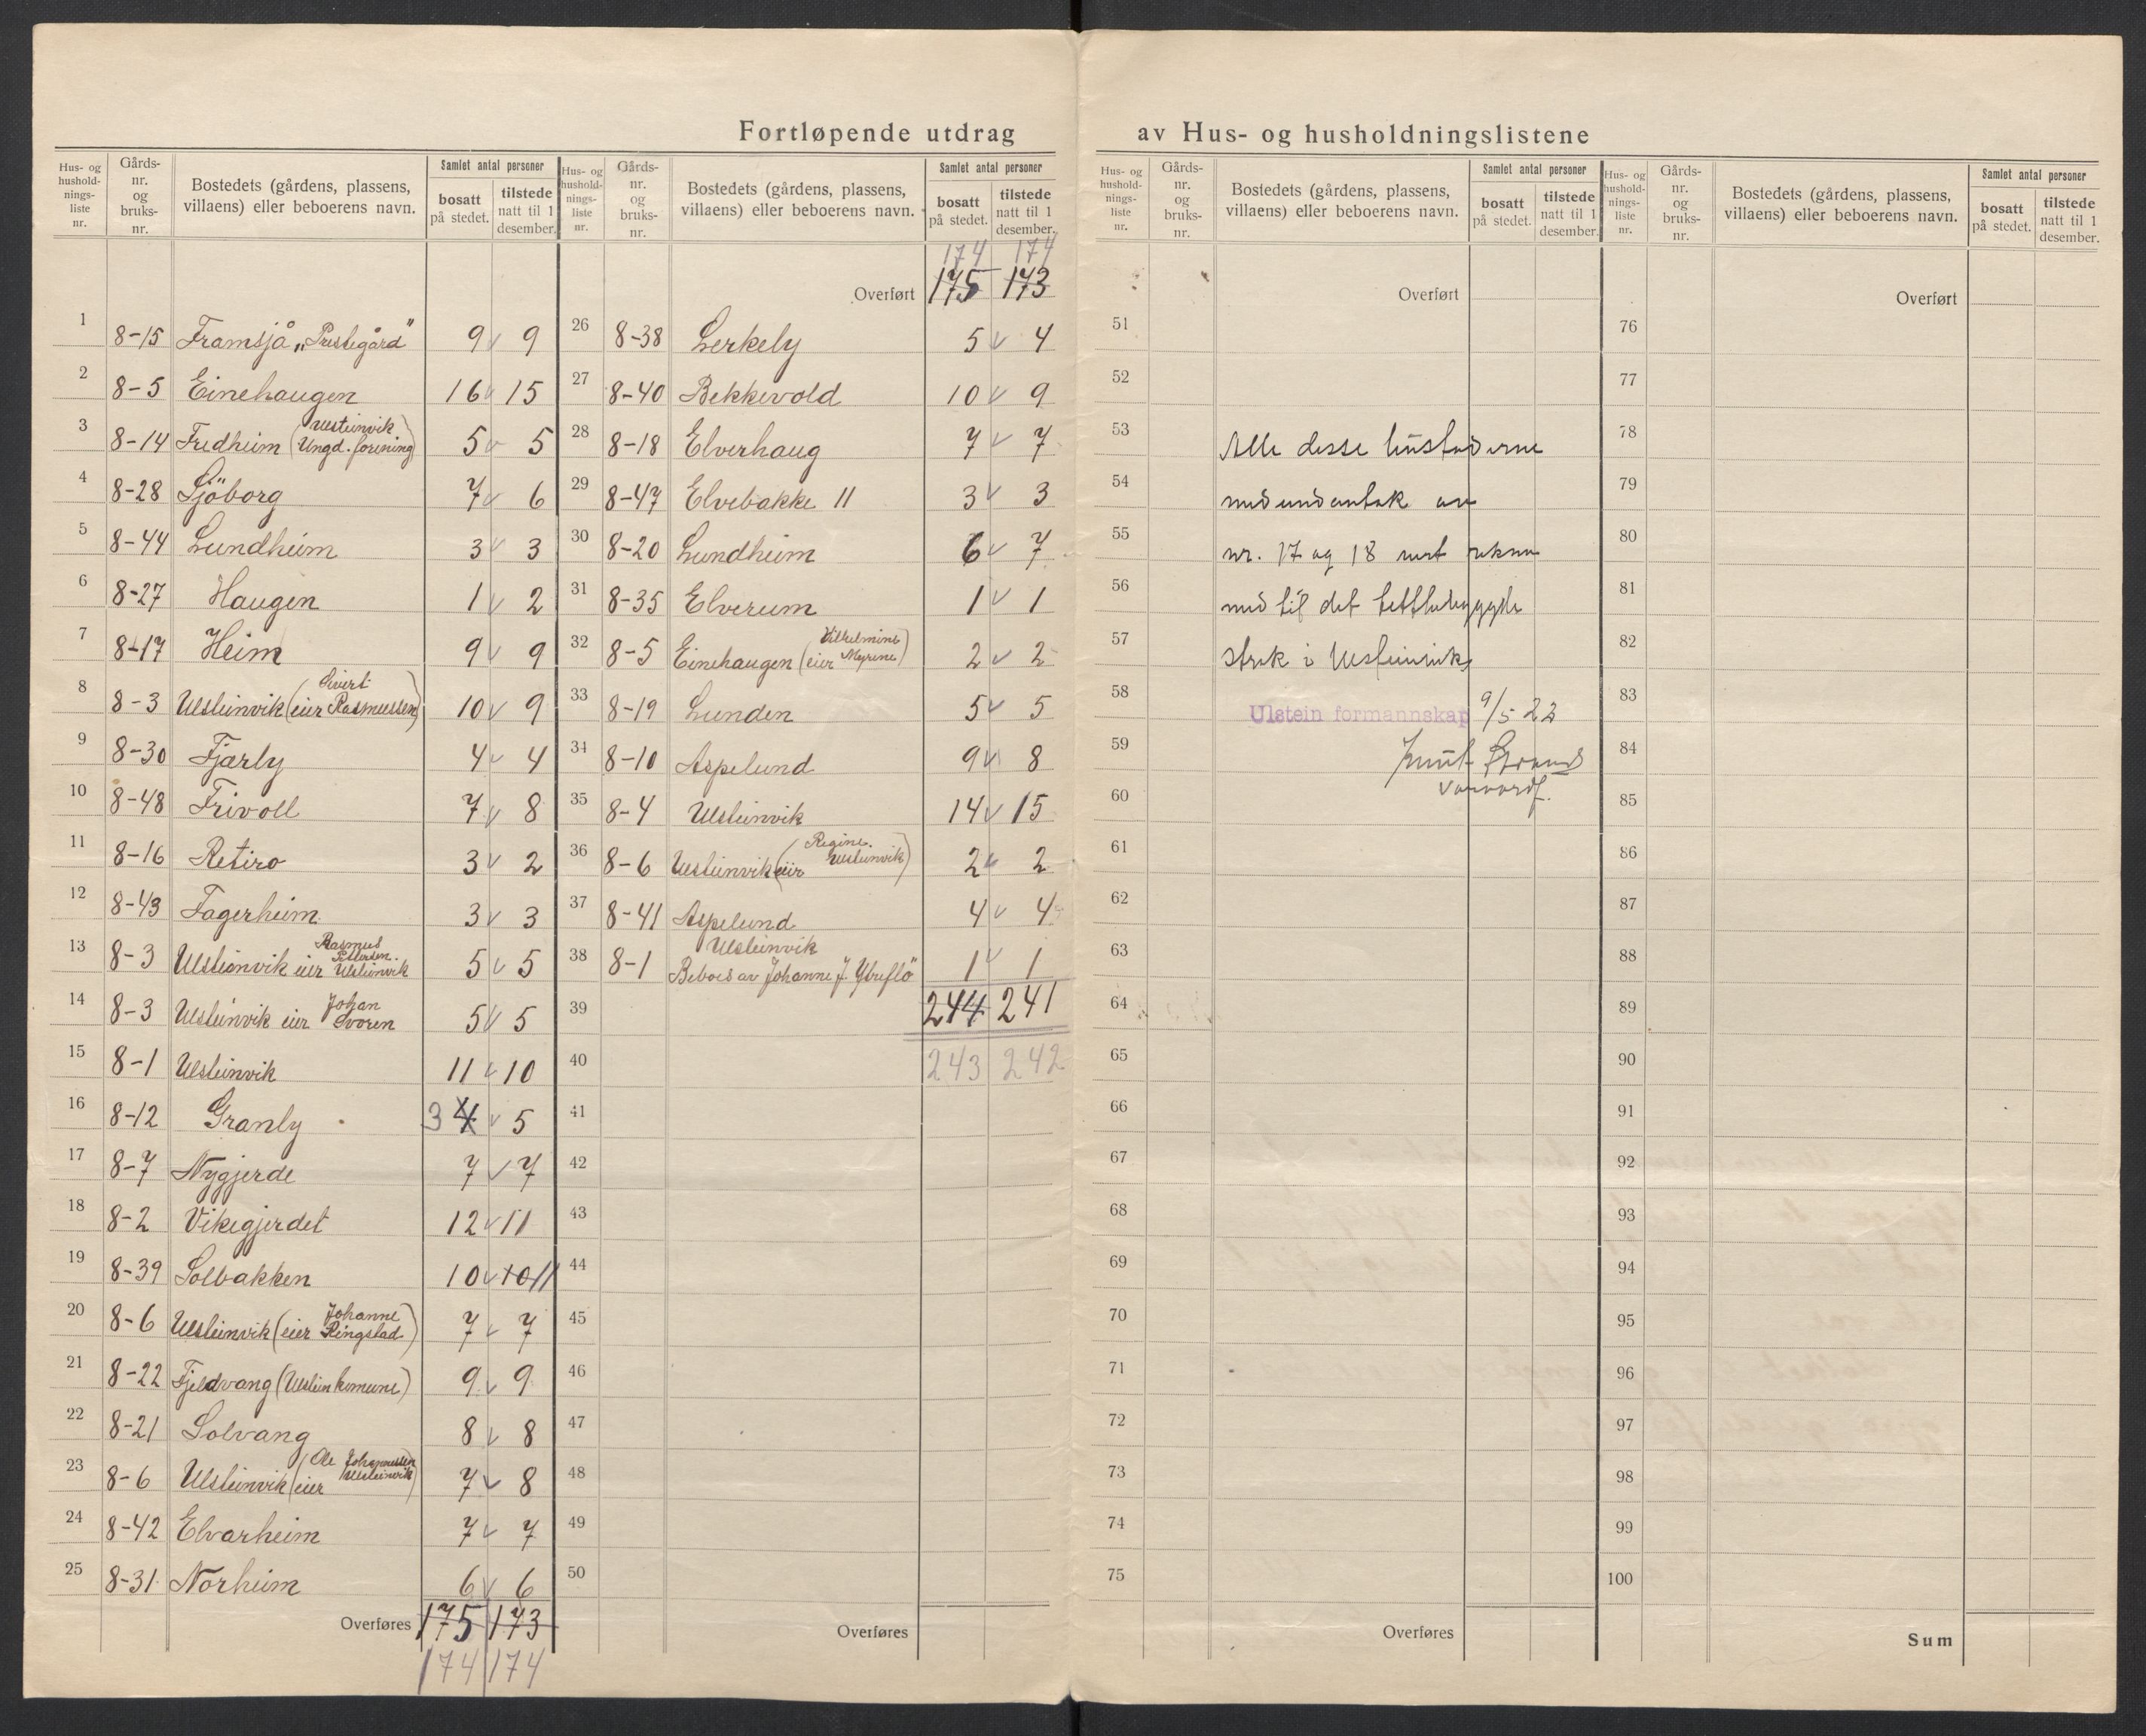 Fortløpende utdrag av Hus- og husholdningslistene
Hus- og hushold- nings- liste nr. Gårds- nr. og bruks- nr. Bostedets (gårdens, plassens, villaens) eller beboerens navn. Samlet antal personer bosatt på stedet. tilstede natt til 1 desember.
1 8-15 Framsjå „Prestegård" 9 v 9
2 8-5 Einehaugen 16 v 15
3 8-14 Fredheim (Ulsteinvik Ungd. forening) 5 v 5
4 8-28 Sjöborg 7 v 6
5 8-44 Lundheim 3 v 3
6 8-27 Haugen 1 v 2
7 8-17 Heim 9 v 9
8 8-3 Ulsteinvik (eier Sivert Rasmussen) 10 v 9
9 8-30 Fjærly 4 v 4
10 8-48 Frivoll 7 v 8
11 8-16 Retiro 3 v 2
12 8-43 Fagerheim 3 v 3
13 8-3 Ulsteinvik eier Rasmus Pettersen Ulsteinvik 5 v 5
14 8-3 Ulsteinvik eier Johan Svoren 5 v 5
15 8-1 Ulsteinvik 11 v 10
16 8-12 Granly 3 4 v 5
17 8-7 Nygjerde 7 v 7
18 8-2 Vikegjerdet 12 v 11
19 8-39 Solbakken 10 v 10 11
20 8-6 Ulsteinvik (eier Johanne Ringstad) 7 v 7
21 8-22 Fjeldvang (Ulstein komune) 9 v 9
22 8-21 Solvang 8 v 8
23 8-6 Ulsteinvik (eier Ole Johannessen Ulsteinvik) 7 v 8
24 8-42 Elvarheim 7 v 7
25 8-31 Norheim 6 v 6
Overføres 175 173
174 174
Hus- og hushold- nings- liste nr. Gårds- nr. og bruks- nr. Bostedets (gårdens, plassens, villaens) eller beboerens navn. Samlet antal personer bosatt på stedet. tilstede natt til 1 desember.
174 174
Overført 175 173
26 8-38 Lerkely 5 v 4
27 8-40 Bekkevold 10 v 9
28 8-18 Elverhaug 7 v 7
29 8-47 Elvebakke II 3 v 3
30 8-20 Lundheim 6 v 7
31 8-35 Elverum 1 v 1
32 8-5 Einehaugen (eier Vilhelmine Myrene) 2 v 2
33 8-19 Lunden 5 v 5
34 8-10 Aspelund 9 v 8
35 8-4 Ulsteinvik 14 v 15
36 8-6 Ulsteinvik (eier Regine Ulsteinvik) 2 v 2
37 8-41 Aspelund 4 v 4
38 8-1 Ulsteinvik Beboes av Johanne J. Ytreflö 1 v 1
39 244 241
40 243 242
41
42
43
44
45
46
47
48
49
50
Overføres
Hus- og hushold- nings- liste nr. Gårds- nr. og bruks- nr. Bostedets (gårdens, plassens, villaens) eller beboerens navn. Samlet antal personer bosatt på stedet. tilstede natt til 1 desember.
Overført
51
52
53 Alle desse
54 med undantak av
55 nr. 17 og 18 vert rekna
56 med til det tettbebyggde
57 strøk i Ulsteinvik
58 Ulstein formannskap 9/5 22
59 Knut Strand
60 varaordf.
61
62
63
64
65
66
67
68
69
70
71
72
73
74
75
Overføres
Hus- og hushold- nings- liste nr. Gårds- nr. og bruks- nr. Bostedets (gårdens, plassens, villaens) eller beboerens navn. Samlet antal personer bosatt på stedet. tilstede natt til 1 desember.
Overført
76
77
78
79
80
81
82
83
84
85
86
87
88
89
90
91
92
93
94
95
96
97
98
99
100
Sum